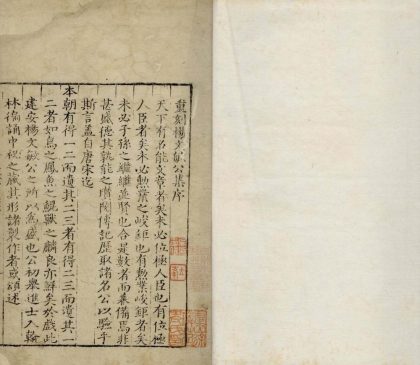 重刻楊文敏公集序
天下有名能文章者矣未必位極人臣也有位極
人臣者矣未必勲業之峻鉅也有勲業峻鉅者矣
未必子孫之繼繼進賢也合是數者而兼備焉非
甚盛德其孰能之瓚閱傳記歷取諸名公以驗乎
斯言盖自唐宋迄
本朝有得一二而遺其二三者有得二三而遺其一
二者如鳥之鳳魚之鯤獸之麟良亦鮮矣於戲此
建安楊文敏公之所以為盛也公初舉進士入翰
林偹誦中秘之藏其形諸製作者或頌述